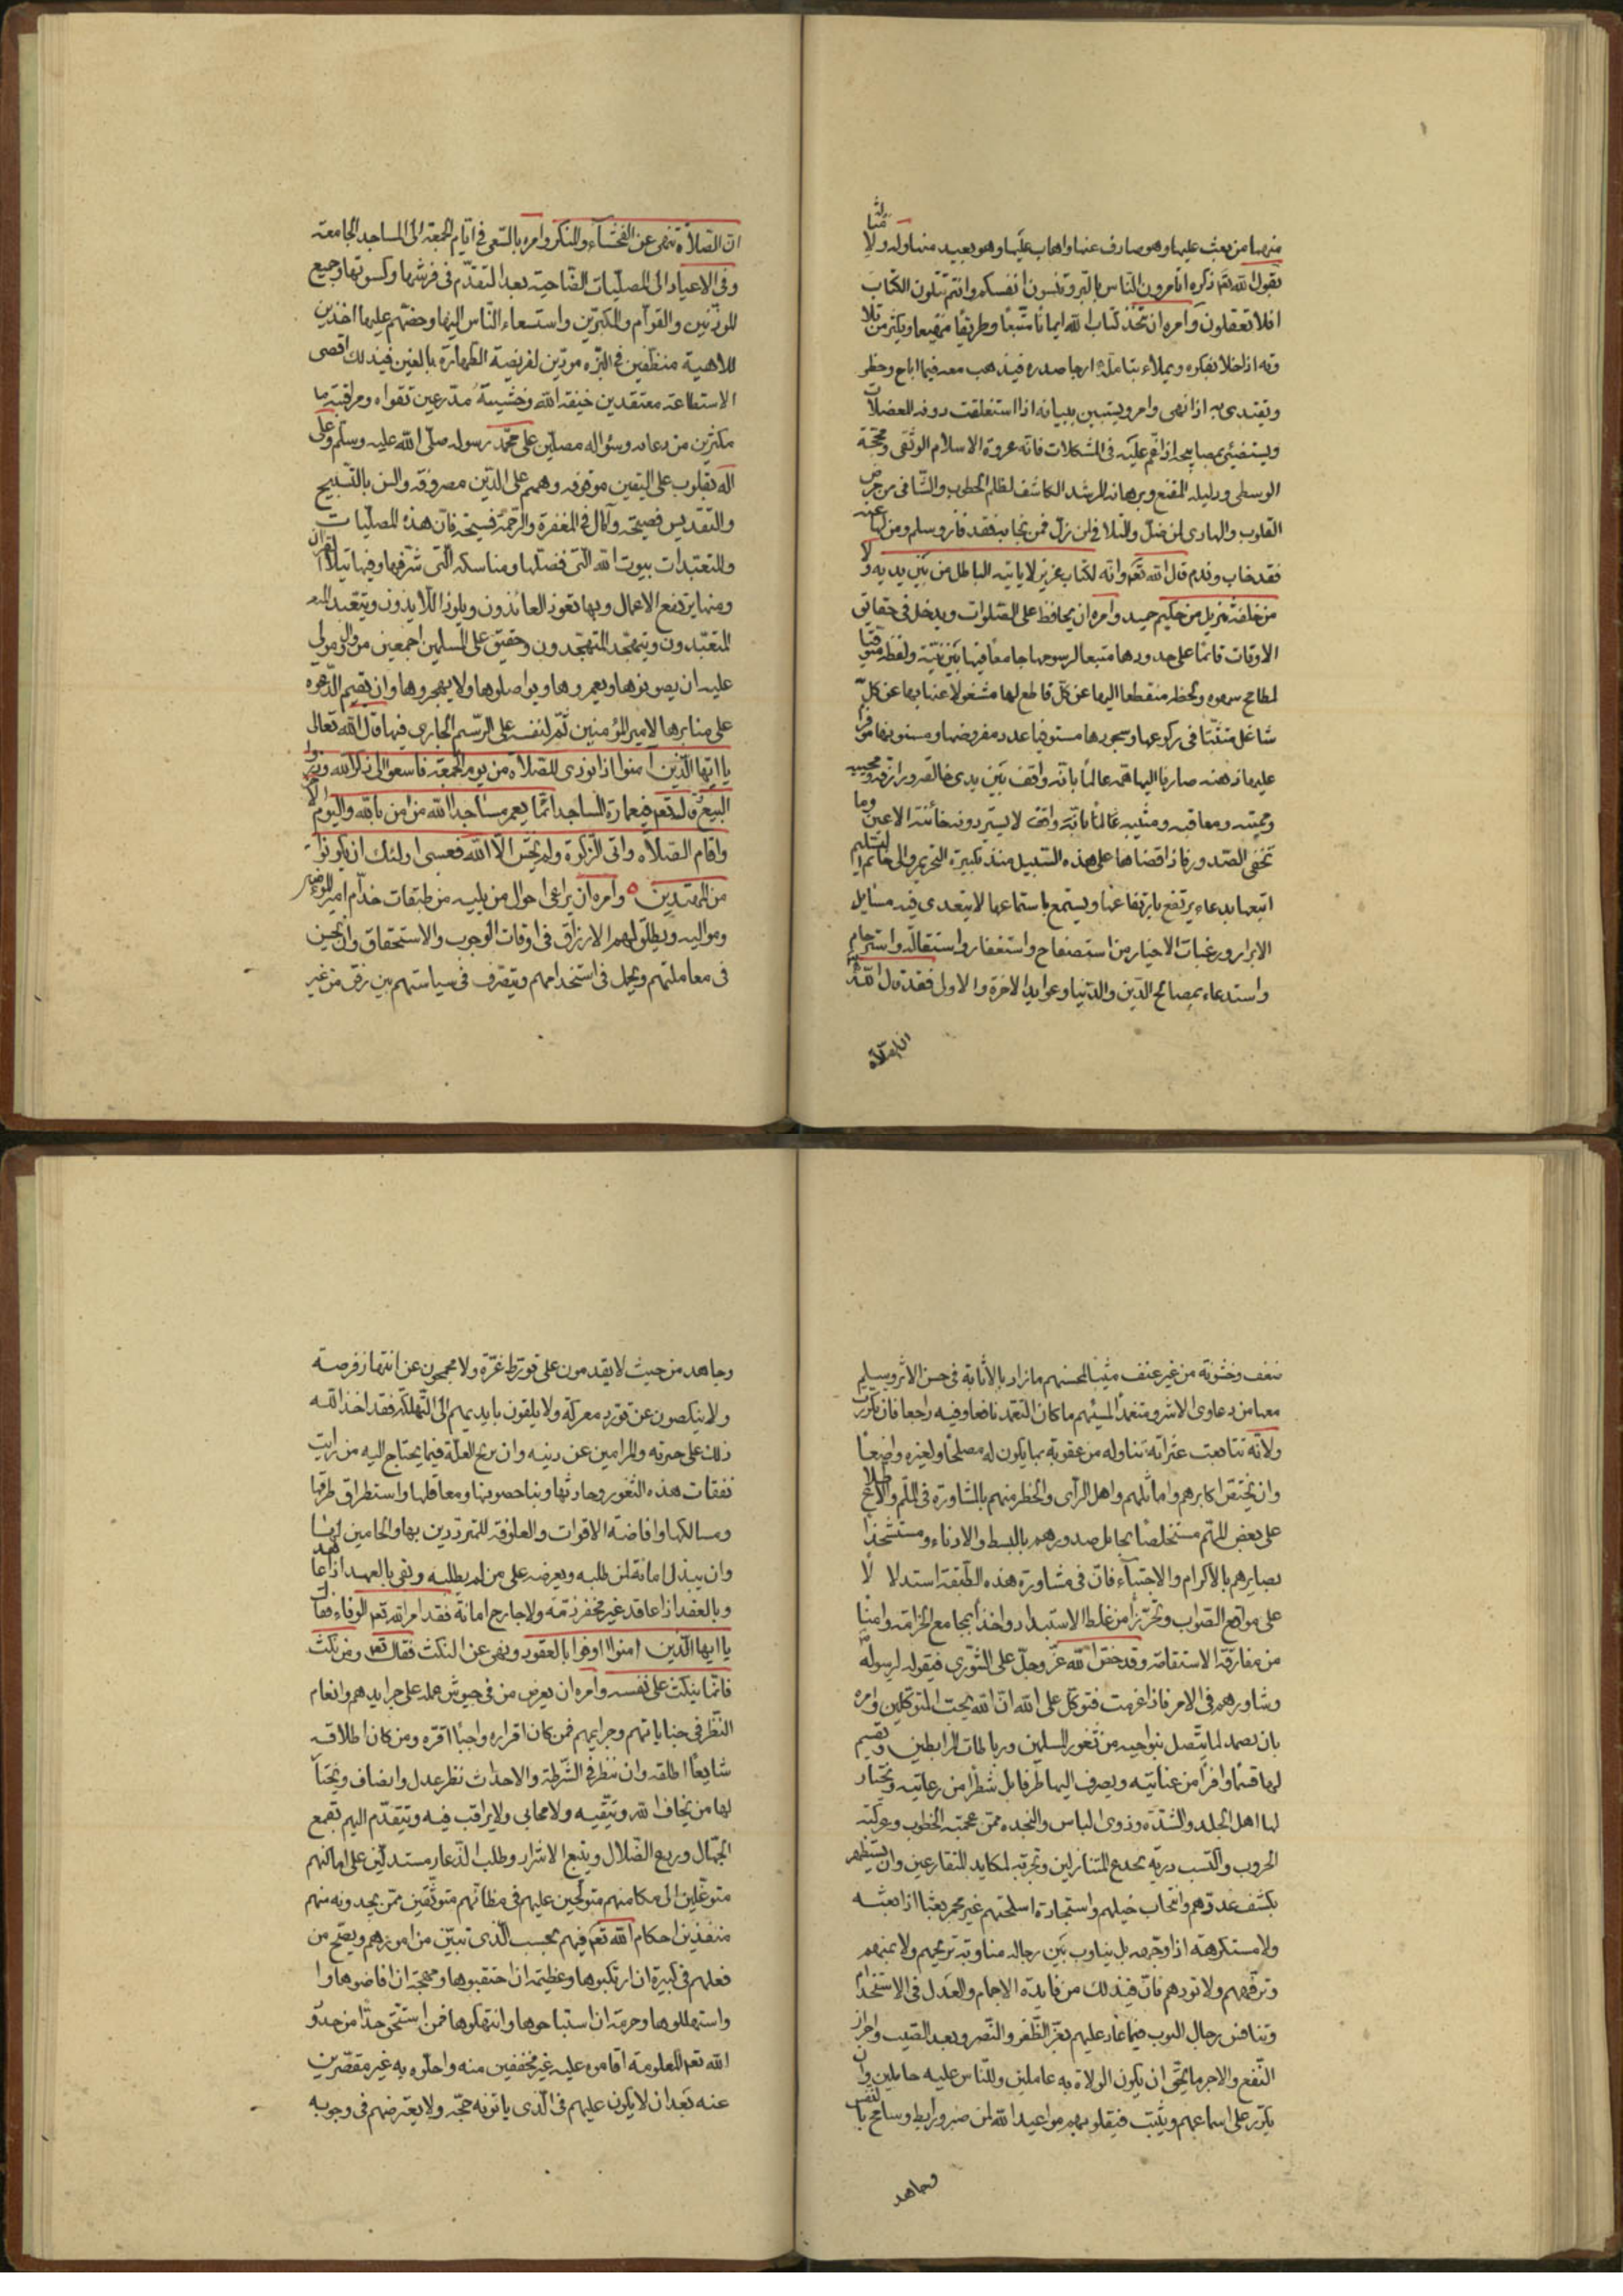 منهيا من يعث عليها وهو صارف عنها واهاب عليها وهو بعيد منها وله ولا
يقول الله تعالى ذكره اتامرون الناس بالبر وتنسون انفسكم وانتم تتلون الكتاب
افلا تعقلون وامره ان يتخذ كتاب الله ايمانا متبعا وطريقا مهيعا ويكثر من تلا
وته اذا خلا بفكره ويملاء بتامله ارجا صدره فيذهب معه فيما اباح وحظر
ويقتدى به اذا نهى وامر ويستبين ببيانه اذا استغلقت دونه المعضلات
ويستضيئ بمصابيحه اذا غم عليه فى المشكلات فانه عروة الاسلام الوثقى ومحجته
الوسطى ودليله المقنع وبرهانه المرشد الكاشف لظلم الخطوب والشافى من مرض
القلوب والهادى لمن ضل والتلافى لمن زل فمن نجا به فقد فاز وسلم ومن لها عنه
فقد خاب وندم قال الله تعم وانه لكتاب عزيز لا ياتيه الباطل من بين يديه ولا
من خلفه تنزيل من حكيم حميد وامره ان يحافظ على الصلوات ويدخل فى حقايق
الاوقات قائما على حدودها متبعا لرسومها جامعا فيها بين نيته ولفظه متوقيا
لمطامح سهوه ولحظه منقطعا اليها عن كل قاطع لها مشغولا عنها بها عن كل
شاغل متثبتا فى ركوعها وسجودها مستوفيا عدد مفروضها ومسنونها موفرا
عليها ذهنه صارفا اليها همه عالما بانه واقف بين يدى خالقه ورازقه ومحييه
ومميته ومعاقبه ومثيبه عالما بانه واقف لا يستر دونه خائنة الاعين وما
تخفى الصدور فاذا قضاها على هذه السبيل منذ تكبيرة التحريم والى خاتم التسليم
اتبعها بدعاء يرتفع بارتفاعها ويستمع باستماعها لا يتعدى فيه مسايل
الابرار ورغبات الاخيار من استصفاح واستغفار واستقالة واسترحام
واستدعاء بمصالح الدين والدنيا وعوايد الاخرة والاولى فقد قال الله تعم
ان الصلاة
ان الصلاة تنهى عن الفحشاء والمنكر وامره بالسعى فى ايام الجمعة الى المساجد الجامعة
وفى الاعياد الى المصليات الضاحية بعد التقدم فى فرشها وكسوتها وجميع
المؤذنين والقوام والمكبرين واستسعاء الناس اليها وحضهم عليها اخذين
للاهبة متنظفين فى البزه مودين لفريضة الطهارة بالغين فى ذلك اقصى
الاستطاعة معتقدين خيفة الله وخشيته مدرعين تقواه ومراقبته
مكثرين من دعائه وسؤاله مصلين على محمد رسوله صلى الله عليه وسلم وعلى
اله بقلوب على اليقين موقوفه وهمم على الدين مصروفة والسن بالتسبيح
والتقديس فصيحة وآمال فى المغفرة والرحمة فسيحة فان هذه المصليات
والمتعبدات بيوت الله التى فضلها ومناسكه التى شرفها وفيها يتلى القران
ومنها يرتفع الاعمال وبها تعوذ العائذون ويلوذ اللايذون ويتعبد
المتعبدون ويتهجد المتهجدون وحقيق على المسلمين اجمعين من وال ومولى
عليه ان يصونوها ويعمروها ويواصلوها ولا يهجروها وان يقيم الدعوه
على منابرها لامير المؤمنين ثم لنفسه على الرسم الجارى فيها قال الله تعالى
يا ايها الذين امنوا اذا نودى للصلاة من يوم الجمعة فاسعوا الى ذكر الله وذروا
البيع وقال تعم فى عمارة المساجد انما يعمر مساجد الله من امن بالله واليوم الاخر
واقام الصلاة واتى الزكوة ولم يخش الا الله فعسى اولئك ان يكونوا
من المهتدين وامره ان يراعى احوال من يليه من طبقات خدام امير المؤمنين
ومواليه ويطلق لهم الارزاق فى اوقات الوجوب والاستحقاق وان يحسن
فى معاملتهم ويجمل فى استخدامهم ويتصرف فى سياستهم بين رفق من غير
ضعف وخشونة من غير عنف مثيبا لمحسنهم ما زاد بالاثابة فى حسن الاثر وسلم
معها من دعاوى الاشر ومتغمدا لمسيئهم ما كان التغمد نافعا وفيه راجعا فان تكررت
زلاته تتابعت عثراته تناوله من عقوبته بما يكون له مصلحا ولغيره واعظا
وان يختص اكابرهم واماثلهم واهل الرأى والخطر منهم بالمشاورة فى الملم والاطلاع
على بعض المهم مستخلصا نخايل صدورهم بالبسط والادناء ومستشحذا
بصايرهم بالاكرام والاجتباء فان فى مشاورة هذه الطبقة استدلالا
على مواقع الصواب وتحرزا من غلط الاستبداد واخذا بمجامع الحزامة وامنا
من مفارقة الاستقامة وقد حض الله عز وجل على الشورى فى قوله لرسوله
وشاورهم فى الامر فاذا عزمت فتوكل على الله ان الله يحب المتوكلين وامره
بان يصمد لما يتصل بنواحيه من ثغور المسلمين ورباطات المرابطين ويقسم
لها قسما وافرا من عنايته ويصرف اليها طرفا بل شطرا من رعايته ويختار
لها اهل الجلد والشدة وذوى الباس والنجده ممن عجمته الخطوب وعركته
الحروب واكتسب دربة بخدع المتنازلين وتجربة لمكايد المتقارعين وان يستظهر
بكشف عددهم وانتخاب خيلهم واستجادة اسلحتهم غير مجمر بعثا اذا بعثه
ولا مستكرهه اذا وجهه بل يناوب بين رجاله مناوبة تريحهم ولا تمهم
وترفههم ولا تودهم فان فى ذلك من فايدة الاجمام والعدل فى الاستخدام
وتنافس رجال النوب فيما عاد عليهم بعز الظفر والنصر وبعد الصيت واحراز
النفع والاجر ما يحق ان يكون الولاة به عاملين وللناس عليه حاملين وان
يكرر على اسماعهم ويثبت فى قلوبهم مواعيد الله لمن صبر ورابط وسامح بالنفس
وجاهد
وجاهد من حيث لا يقدمون على تورط غرة ولا يحجمون عن انتهاز فرصة
ولا ينكصون عن تورد معركة ولا يلقون بايديهم الى التهلكة فقد اخذ الله
ذلك على خلقه والمرامين عن دينه وان يزيح العلة فيما يحتاج اليه من راتب
نفقات هذه الثغور وحادثها وبنا حصونها ومعاقلها واستطراق طرقها
ومسالكها وافاضة الاقوات والعلوفة للمترددين بها والحامين لها
وان يبذل امانه لمن طلبه ويعرضه على من لم يطلبه ويفى بالعهد اذا عاهد
وبالعقد اذا عاقد غير مخفر ذمة ولا جارح امانة فقد امر الله تعم الوفاء فقال
يا ايها الذين امنوا اوفوا بالعقود ونهى عن النكث فقال تعم ومن نكث
فانما ينكث على نفسه وامره ان يعرض من فى حبوس عمله على جرايدهم وانعام
النظر فى جناياتهم وجرايمهم فمن كان اقراره واجبا اقره ومن كان اطلاقه
شايعا اطلقه وان ينظر فى الشرطة والاحداث نظر عدل وانصاف ويختار
لها من يخاف الله ويتقيه ولا يحابى ولا يراقب فيه ويتقدم اليهم بقمع
الجهال وردع الضلال وتتبع الاشرار وطلب الدعار مستدلين على اماكنهم
متوغلين الى مكامنهم متولجين عليهم فى مظانهم متوثقين ممن يجدونه منهم
منفذين احكام الله تعم فيهم بحسب الذى تبين من امورهم ويصح من
فعلهم فى كبيرة ان ارتكبوها وعظيمة ان احتقبوها ومهجة ان افاضوها
واستهلكوها وحرمة ان استباحوها وانتهكوها فمن استحق حدا من حدود
الله تعم المعلومة اقاموه عليه غير مخففين منه واحلوه به غير مقصرين
عنه بعد ان لا يكون عليهم فى الذى ياتونه حجة ولا يعترضهم فى وجوبه